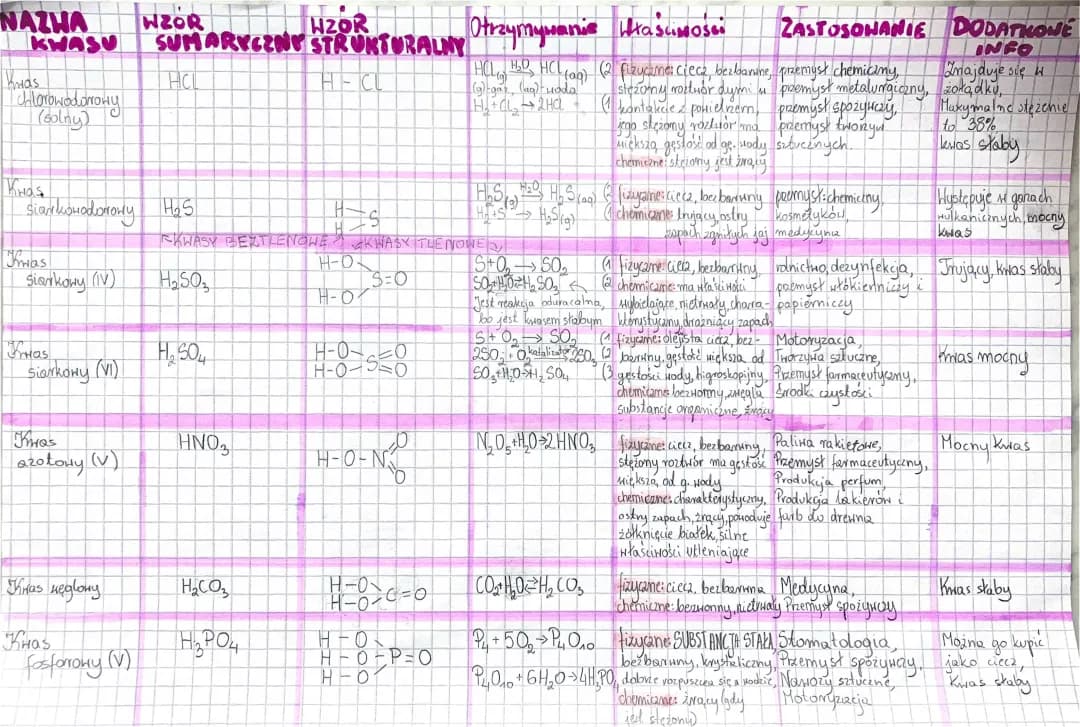 NAZWA KWASU
WZÓR SUMARYCZNY
WZÓR STRUKTURALNY
Otrzymywanie
Właściwości
ZASTOSOWANIE
DODATKOWE INFO
Kwas
chlorowodorowy
(solny)
HCl
H - Cl
HCl(g) H₂O→ HCl(aq) (2
(g)-gaz, (aq)-woda
H₂+Cl₂→2HCl (1
fizyczne: ciecz, bezbarwne,
stężony roztwór dymi w
kontakcie z powietrzem,
jego stężony roztwór ma
większą gęstość od gę. wody
chemiczne: stężony jest żrący
przemysł chemiczny,
przemysł metalurgiczny,
przemysł spożywczy,
przemysł tworzyw
sztucznych.
Znajduje się w
żołądku,
Maxymalne stężenie
to 38%
kwas słaby
Kwas
siarkowodorowy
H₂S
H
S
H
H₂S(g) H₂O→ H₂S(aq) (2
H₂+S → H₂S(g) (1
fizyczne: ciecz, bezbarwny
chemiczne: trujący, ostry
zapach zgniłych jaj
przemysł: chemiczny,
kosmetyków,
medycyna
Występuje w gorach
wulkanicznych, mocny
kwas
KWASY BEZTLENOWE
KWASY TLENOWE
Kwas
siarkowy (IV)
H₂SO₃
H-O
S=O
H-O
S+O₂→SO₂ (1
SO₂+H₂O⇄H₂SO₃ (2
Jest reakcja odwracalna,
bo jest kwasem słabym
fizyczne: ciecz, bezbarwny,
chemiczne: ma właściwości
wybielające, nietrwały, chara-
kterystyczny, drażniący zapach
rolnictwo, dezynfekcja,
przemysł włókienniczy i
papierniczy
Trujący, kwas słaby
Kwas
siarkowy (VI)
H₂SO₄
H-O-S=O
H-O-S=O
S+O₂→SO₂ (1
2SO₂+O₂ katalizator→2SO₃ (2
SO₃+H₂O→H₂SO₄ (3
fizyczne: oleista ciecz, bez-
barwny, gęstość większa, od
gęstości wody, higroskopijny,
chemiczne: bezwonny, zwęgla
substancje organiczne, żrący
Motoryzacja,
Tworzywa sztuczne,
Przemysł farmaceutyczny,
Środki czystości
Kwas mocny
Kwas
azotowy (V)
HNO₃
O
H-O-N
O
N₂O₅+H₂O→2HNO₃
fizyczne: ciecz, bezbarwny,
stężony roztwór ma gęstość
większą, od g. wody
chemiczne: charakterystyczny,
ostry zapach, żrący, powoduje
żółknięcie białek, silne
właściwości utleniające
Paliwa rakietowe,
Przemysł farmaceutyczny,
Produkcja perfum,
Produkcja lakierów i
farb do drewna
Mocny kwas
Kwas węglowy
H₂CO₃
H-O
C=O
H-O
CO₂+H₂O⇄H₂CO₃
fizyczne: ciecz, bezbarwna
chemiczne: bezwonny, nietrwały
Medycyna,
Przemysł spożywczy
Kwas słaby
Kwas
fosforowy (V)
H₃PO₄
H-O
H-O-P=O
H-O
P₄+5O₂→P₄O₁₀
P₄O₁₀+6H₂O→4H₃PO₄
fizyczne: SUBSTANCJA STAŁA,
bezbarwny, krystaliczny,
dobrze rozpuszcza się w wodzie,
chemiczne: żrący (gdy
jest stężony)
Stomatologia,
Przemysł spożywczy,
Nawozy sztuczne,
Motoryzacja
Można go kupić
jako ciecz,
Kwas słaby